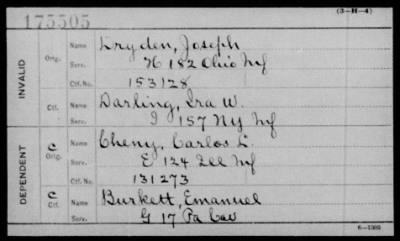 (3-H-4)
175505
INVALID
Orig.
Name Dryden, Joseph
Serv. H 182 Ohio Inf
Ctf. No. 153128
Ctf.
Name Darling, Ira W.
Serv. I 157 NY Inf
DEPENDENT
C
Orig.
Name Cheny, Carlos L.
Serv. E 124 Ill Inf
Ctf. No. 131273
C
Ctf.
Name Burkett, Emanuel
Serv. G 17 Pa Cav